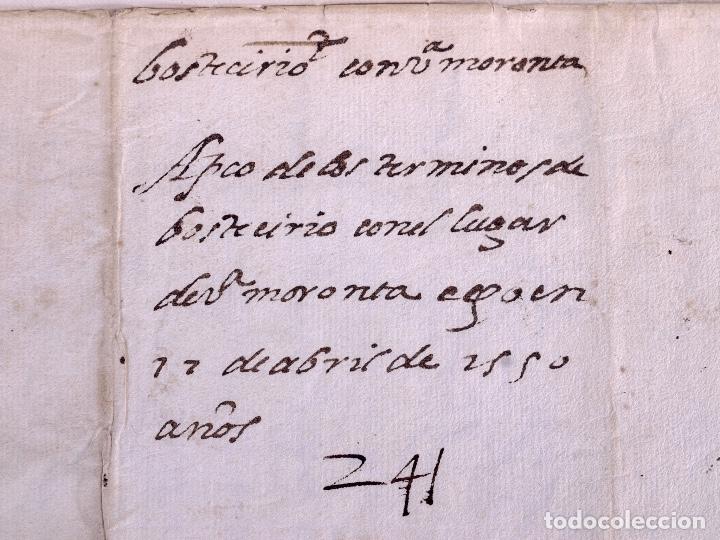 bostecirio conv.ª moronta
Apeo de los terminos de
bostecirio con el lugar
de v.ª moronta
de abril de 1550
años
241
todocoleccion